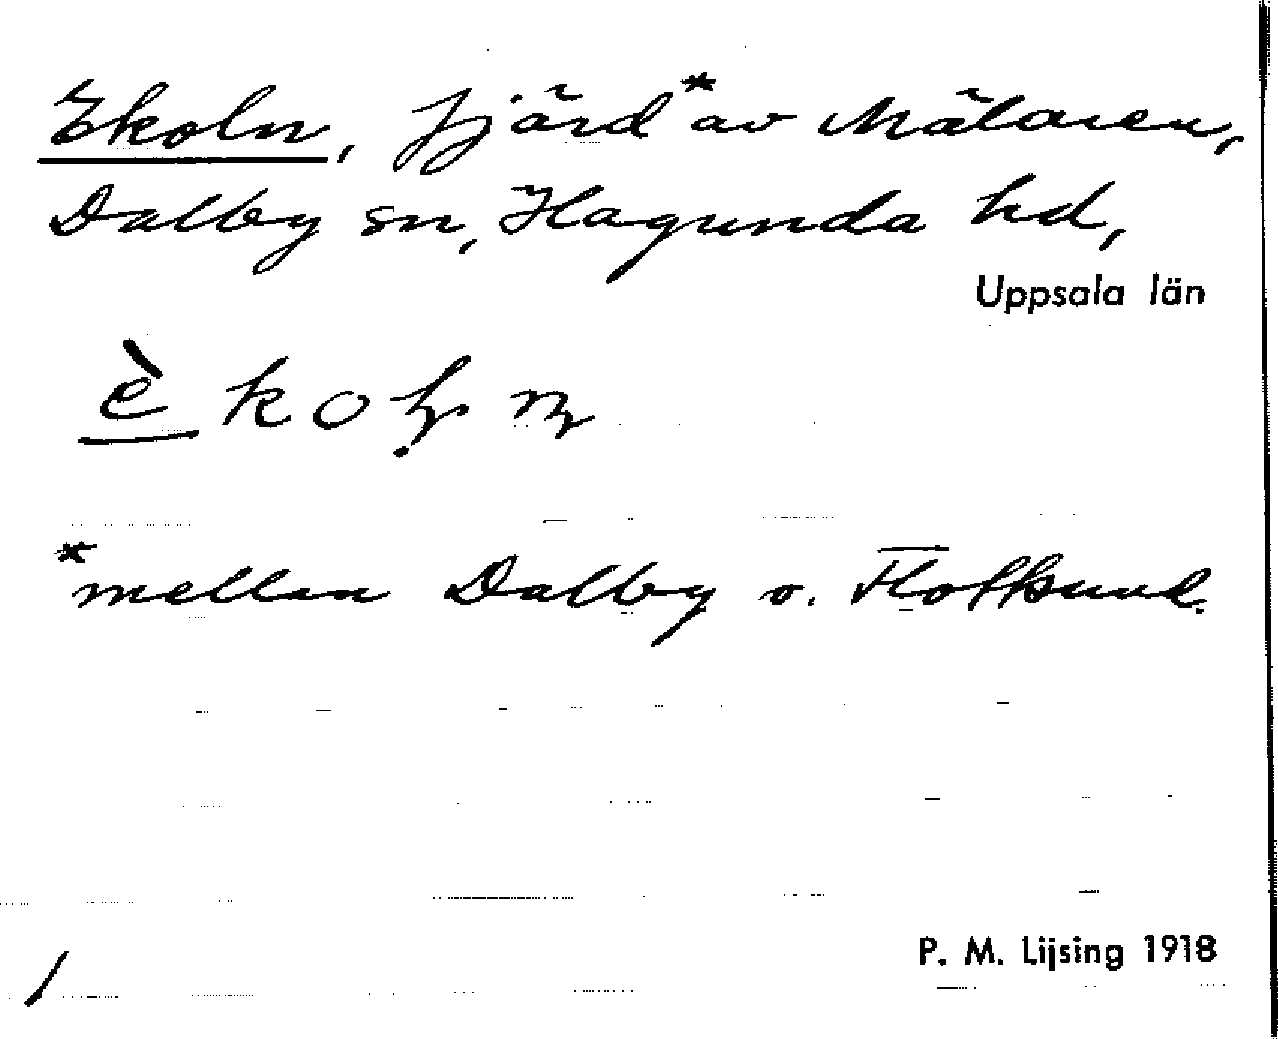 Ekoln, fjärd* av Mälaren,
Dalby sn, Hagunda hd,
Uppsala län
*mellan Dalby o. Flottsund.
P. M. Lijsing 1918